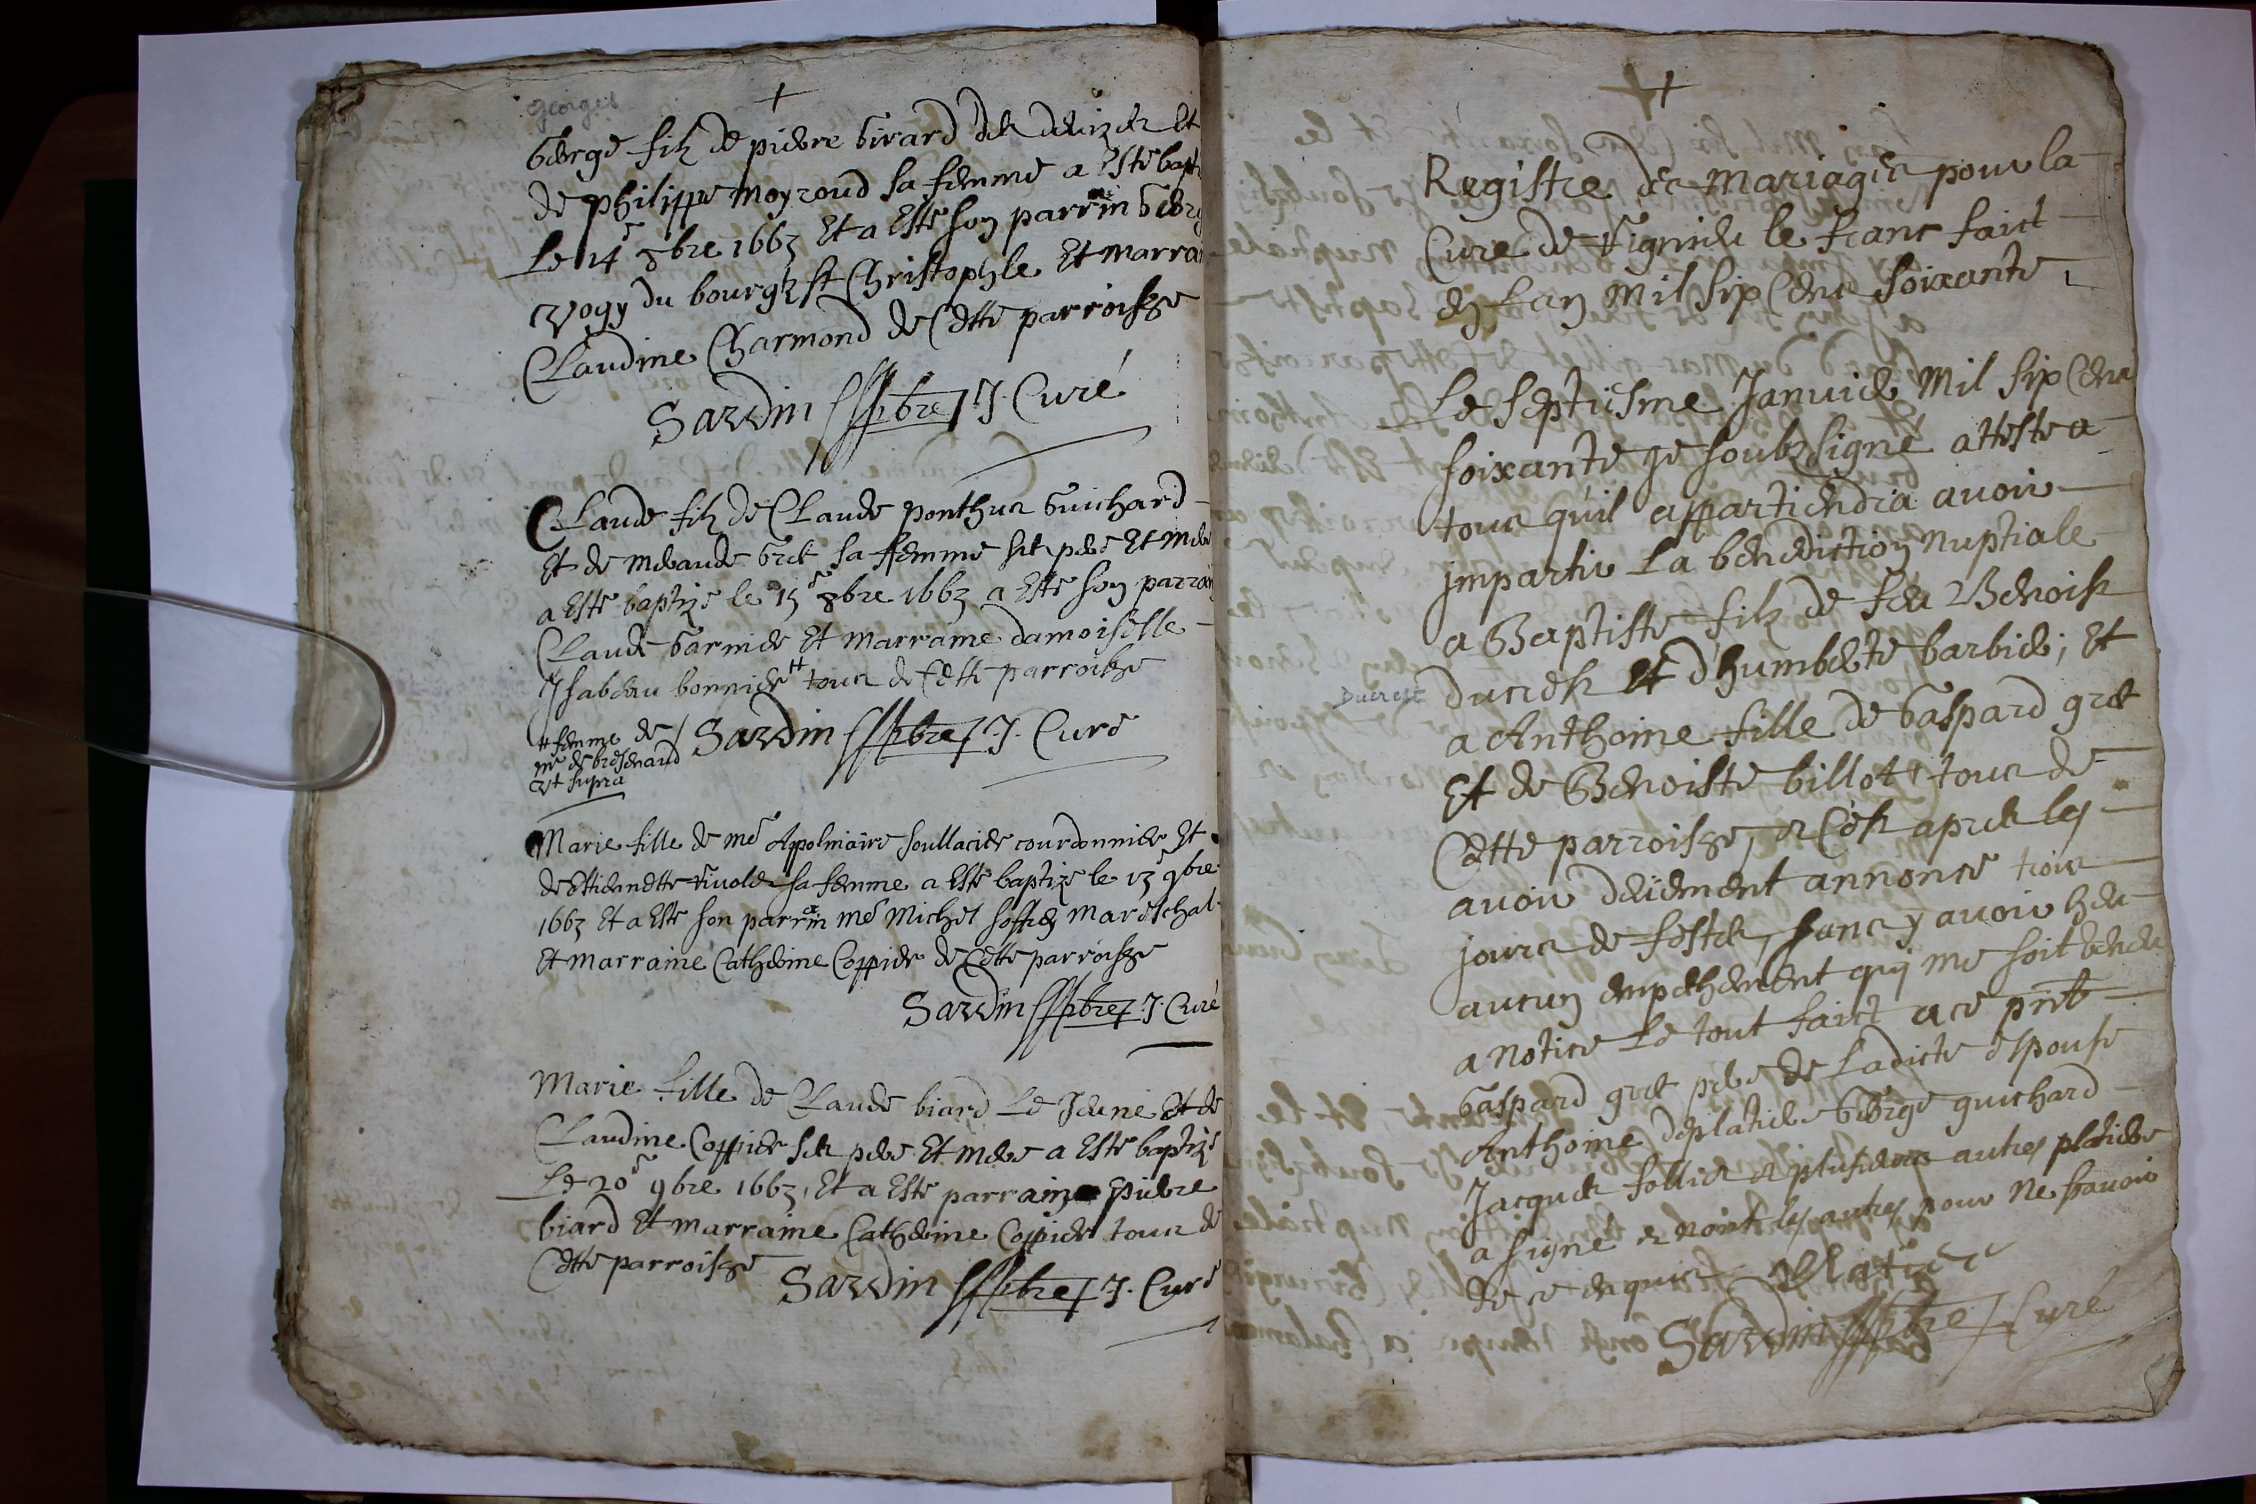 Georges
+
George filz de pierre Girard dit deuizet Et
de philippe moyroud sa femme a Esté bapti
Le 14e 8bre 1663 Et a Esté son parrain Georg
Vogy du bourgt st Christophle Et marra
Claudine Charmond de Cette parroisse
Sardin pbre J. Curé
Claude filz de Claude ponthus Guichard
Et de meraude Gret sa femme ses pere Et mere
a Esté baptizé le 15e 8bre 1663 a Esté son parrain
Claude Garnier Et marraine damoiselle
Isabeau bonnier # tous de Cette parroisse
# femme de
mre de
Vt supra
Sardin pbre J. Curé
Marie fille de me Appolinaire soullacier courdonnier Et
de Ettiennette sa femme a Esté baptizé le 13e 9bre
1663 Et a Esté son parrain me Michel mareschal
Et marraine Catherine Coppier de Cette parroisse
Sardin pbre J. Curé
Marie fille de Claude biard Le Jeune Et de
Claudine Coppier ses pere Et mere a Esté baptizé
Le 20e 9bre 1663, Et a Esté parrain pierre
biard Et marraine Catherine Coppier tous de
Cette parroisse
Sardin pbre J. Curé
+
Registre des mariages pour la
Cure de Vignieu le franc faict
en Lan Mil six Cens soixante
Le septiesme Januier Mil six Cens
soixante Je soubzsigné atteste a
tous quil appartiendra auoir
Imparti La benediction Nuptiale
a Baptiste filz de feu Benoist
Ducrest
ducrest Et d'humberte barbier; Et
a Anthoine fille de Gaspard gret
Et de Benoiste billot tous de
Cette parroisse, et C'est apres les
auoir deüement annoncé trois
jours de festes, sans y auoir heu
aucun empechement quj me soit venu
a notice Le tout faict a ce pnt
Gaspard gret pere de Ladicte espouse
Anthoine deplatiere George guichard
Jacques follier et plusieurs autres platiere
a signé et nont les autres pour Ne scauoir
de ce enquis
Platiere
Sardin pbre Curé